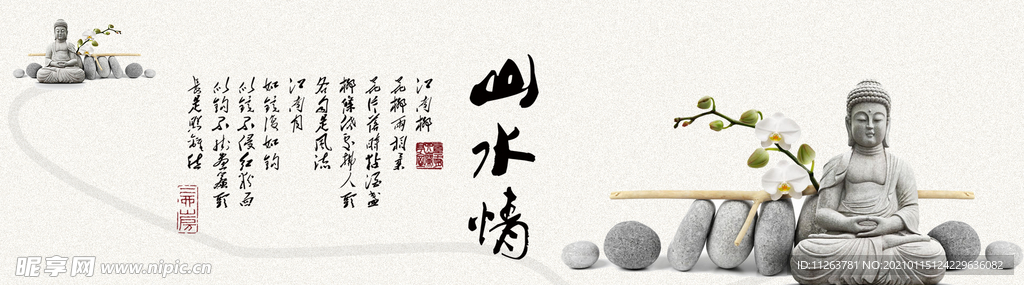 山水情
江南柳
花柳两相柔
花片落时黏酒盏
柳条低处拂人头
各自是风流
江南月
如镜复如钩
似镜不侵红粉面
似钩不挂画帘头
长是照离愁
昵享网 www.nipic.cn
ID:11263781 NO:20210115124229636082